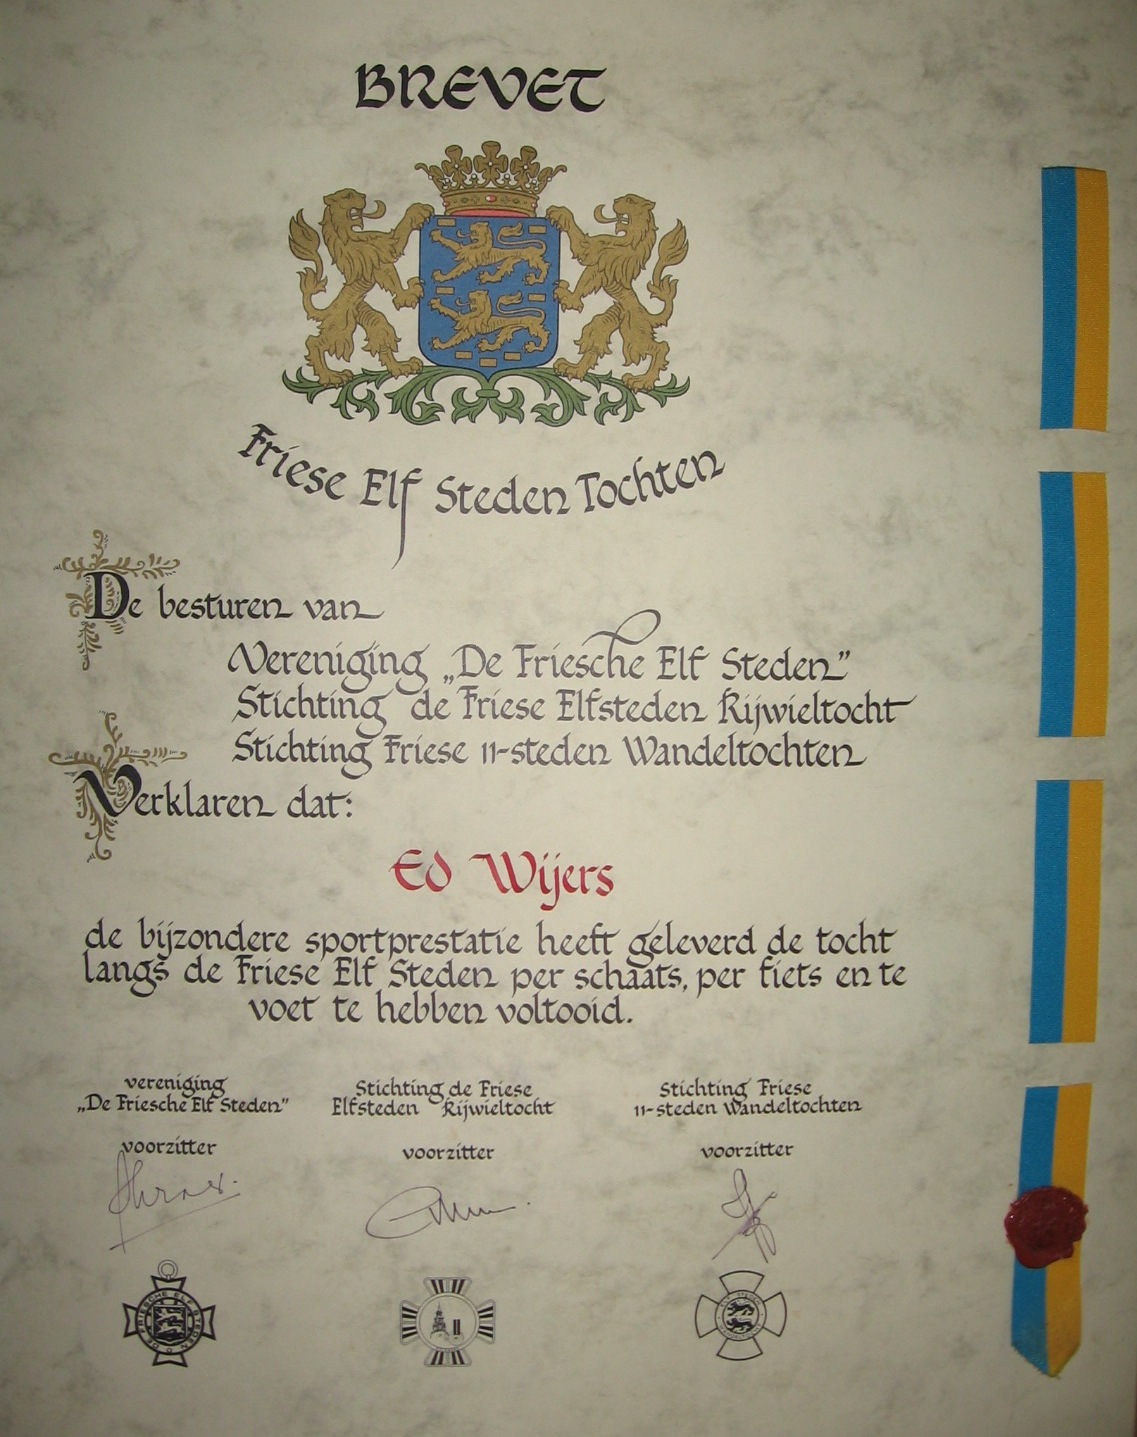 BREVET
Friese Elf Steden Tochten
De besturen van
Vereniging „De Friesche Elf Steden”
Stichting de Friese Elfsteden Rijwieltocht
Stichting Friese 11-steden Wandeltochten
Verklaren dat:
Ed Wijers
de bijzondere sportprestatie heeft geleverd de tocht
langs de Friese Elf Steden per schaats, per fiets en te
voet te hebben voltooid.
vereniging
„De Friesche Elf Steden”
voorzitter
Stichting de Friese
Elfsteden Rijwieltocht
voorzitter
Stichting Friese
11-steden Wandeltochten
voorzitter
DE FRIESCHE ELF STEDEN